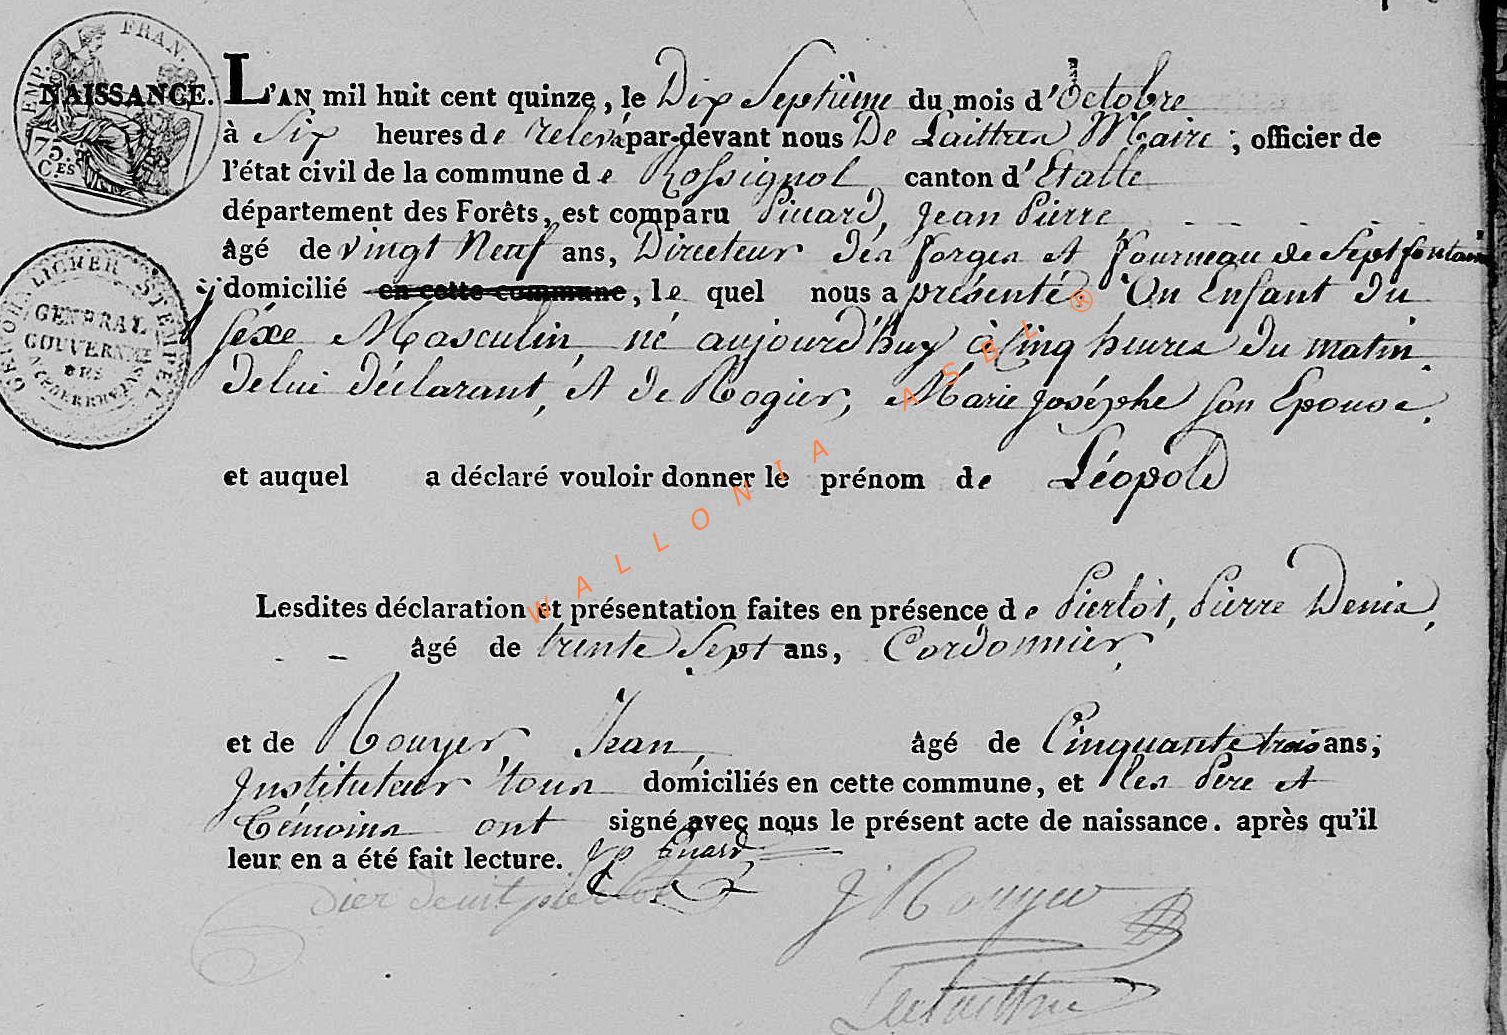 EMP. FRAN.
75.
CES
NAISSANCE. L'AN mil huit cent quinze, le Dix Septième du mois d'Octobre
à Six heures de relevé par-devant nous De Laittres Maire ; officier de
l'état civil de la commune de Rossignol canton d'Etalle
département des Forêts, est comparu Picard, Jean Pierre
âgé de vingt Neuf ans, Directeur des forges et fourneau de Septfontain
y domicilié en cette commune, le quel nous a présenté Un Enfant du
séxe Masculin, né aujourd'huy à Cinq heures du matin
de lui déclarant, et de Rogier, Marie Joséphe son Epouse.
GENERAL
GOUVERNMT
STEMPEL
et auquel a déclaré vouloir donner le prénom de Léopold
Lesdites déclaration et présentation faites en présence de Pierlot, Pierre Denis,
âgé de trente Sept ans, Cordonnier,
et de Rouyer, Jean, âgé de Cinquante trois ans;
Instituteur tous domiciliés en cette commune, et les Père et
Témoins ont signé avec nous le présent acte de naissance. après qu'il
leur en a été fait lecture. J p Picard
pierlot
J Rouyer
Delaittre
WALLONIA ASBL ®